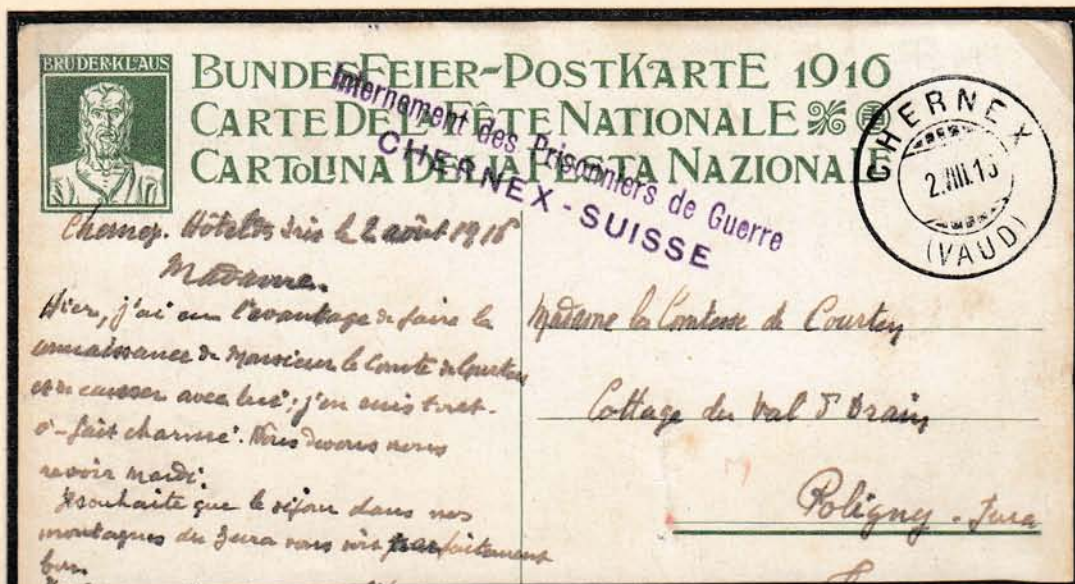 BRUDER·KLAUS
BUNDESFEIER-POSTKARTE 1916
CARTE DE LA FÊTE NATIONALE
CARTOLINA DELLA FESTA NAZIONALE
Internement des Prisonniers de Guerre
CHERNEX - SUISSE
CHERNEX
2.VIII.16
(VAUD)
Chernex. Hôtel des Iris le 2 août 1916
Madame.
Hier, j'ai eu l'avantage de faire la
connaissance de Monsieur le Comte de Courten
et de causer avec lui; j'en suis tout-
à-fait charmé. Nous devons nous
revoir mardi.
Je souhaite que le séjour dans nos
montagnes du Jura vous soit parfaitement
bon.
Madame la Comtesse de Courten
Cottage du Val d'Orain
Poligny - Jura